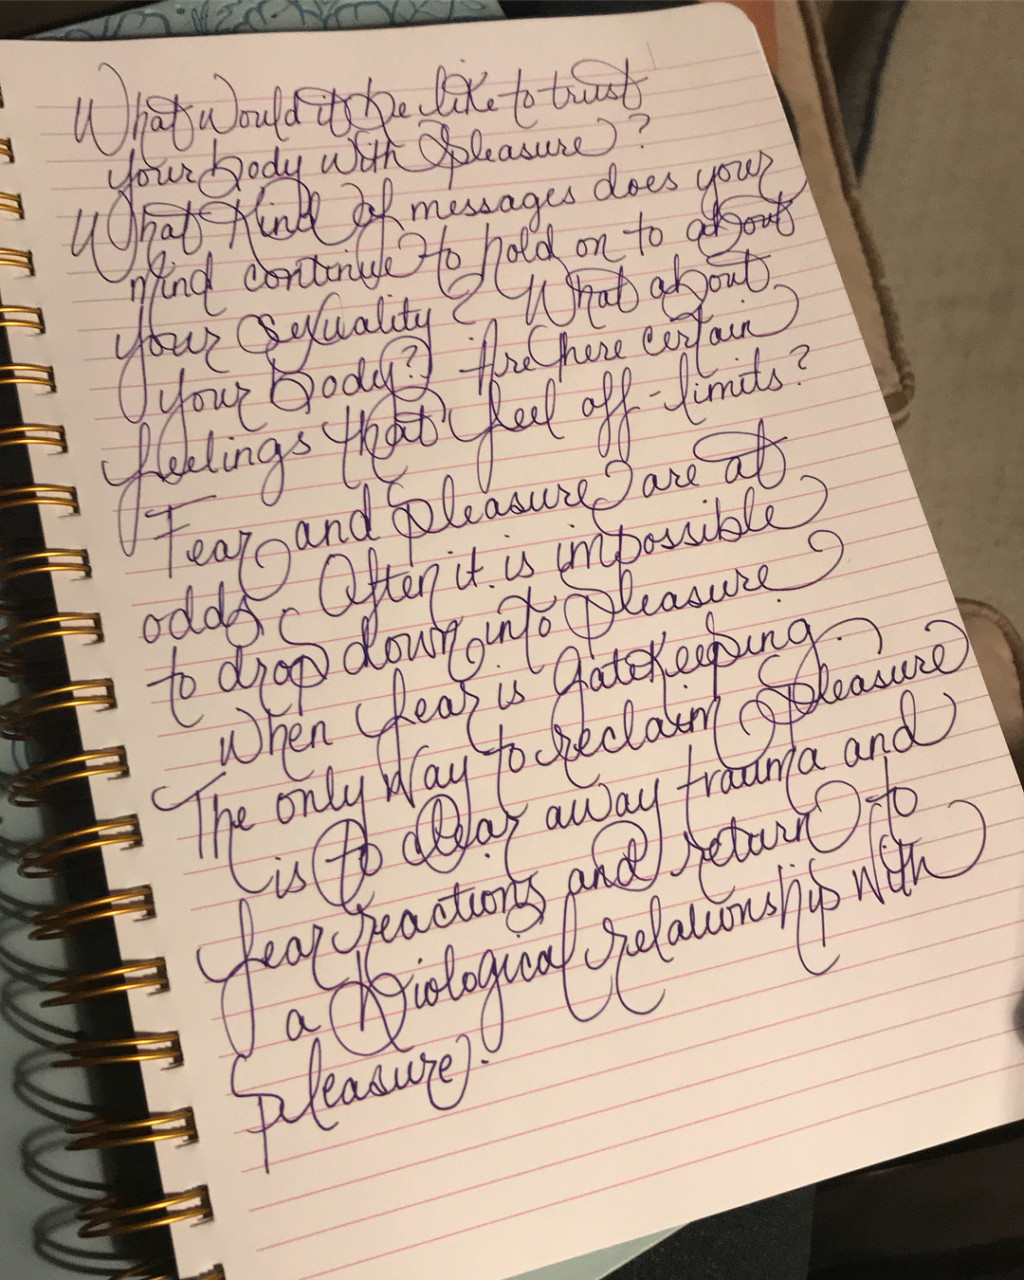 What would it be like to trust
your body with pleasure?
What kind of messages does your
mind continue to hold on to about
your sexuality? What about
your body? Are there certain
feelings that feel off-limits?
Fear and pleasure are at
odds. Often it is impossible
to drop down into pleasure
when fear is gatekeeping.
The only way to reclaim pleasure
is to clear away trauma and
fear reactions and return to
a biological relationship with
pleasure.